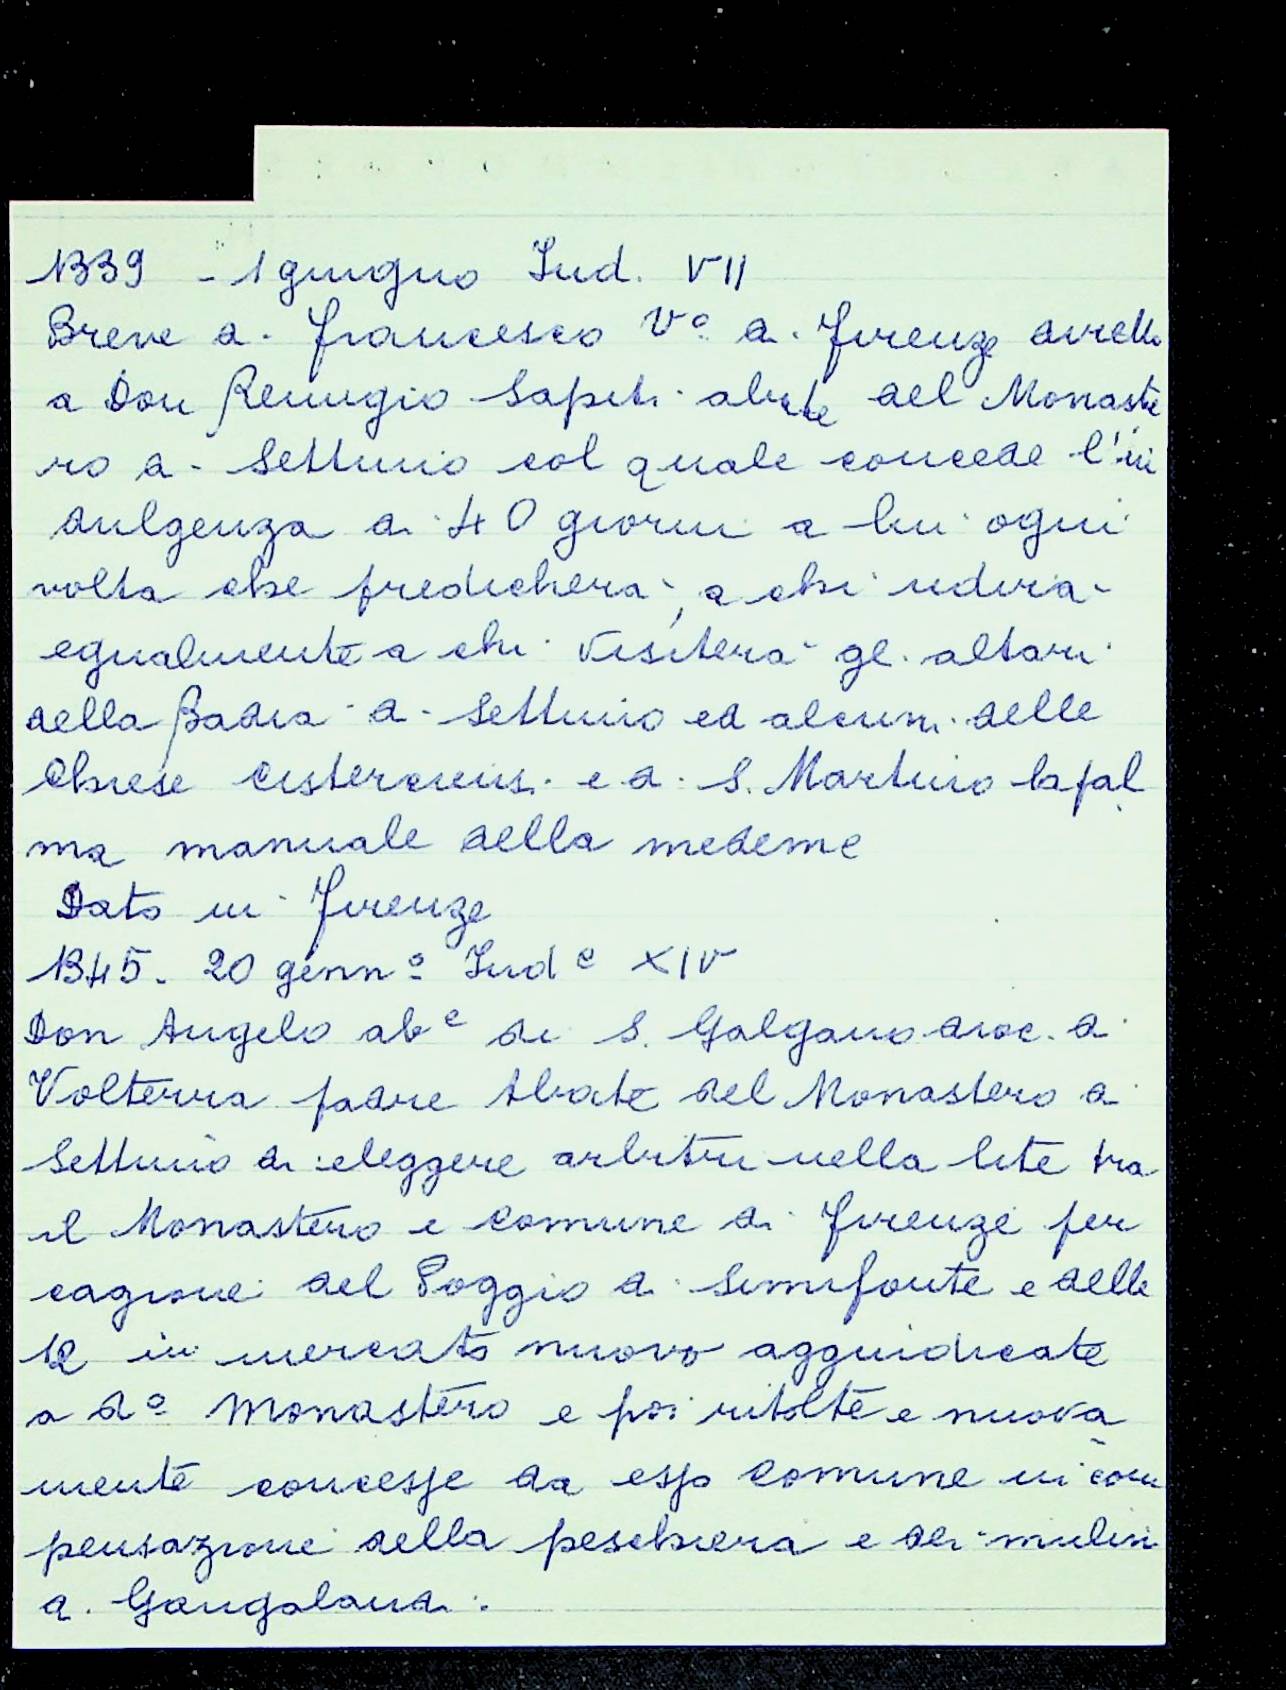 1339 - 1 giugno Ind. VII
Breve di Francesco Vº di Firenze diretto
a Don Remigio Sapiti abate del Monaste
ro di Settimo col quale concede l'in
dulgenza di 40 giorni a lui ogni
volta che predicherà, a chi udirà
egualmente a chi visiterà gl. altari
della Badia di Settimo ed alcuni delle
Chiese cistercensi e di S. Martino la pal
ma manuale della medeme
Dato in Firenze
1345. 20 gennº Indᵉ XIV
Don Angelo abᵉ di S. Galgano dioc. di
Volterra padre Abate del Monastero di
Settimo di eleggere arbitri nella lite tra
il Monastero e comune di Firenze per
cagione del Poggio di Simifonte e delle
12 in mercato nuovo aggiudicate
a dº Monastero e poi ritolte e nuova
mente concesse da esso Comune in com
pensazione della peschiera e dei mulini
di Gangalandi.